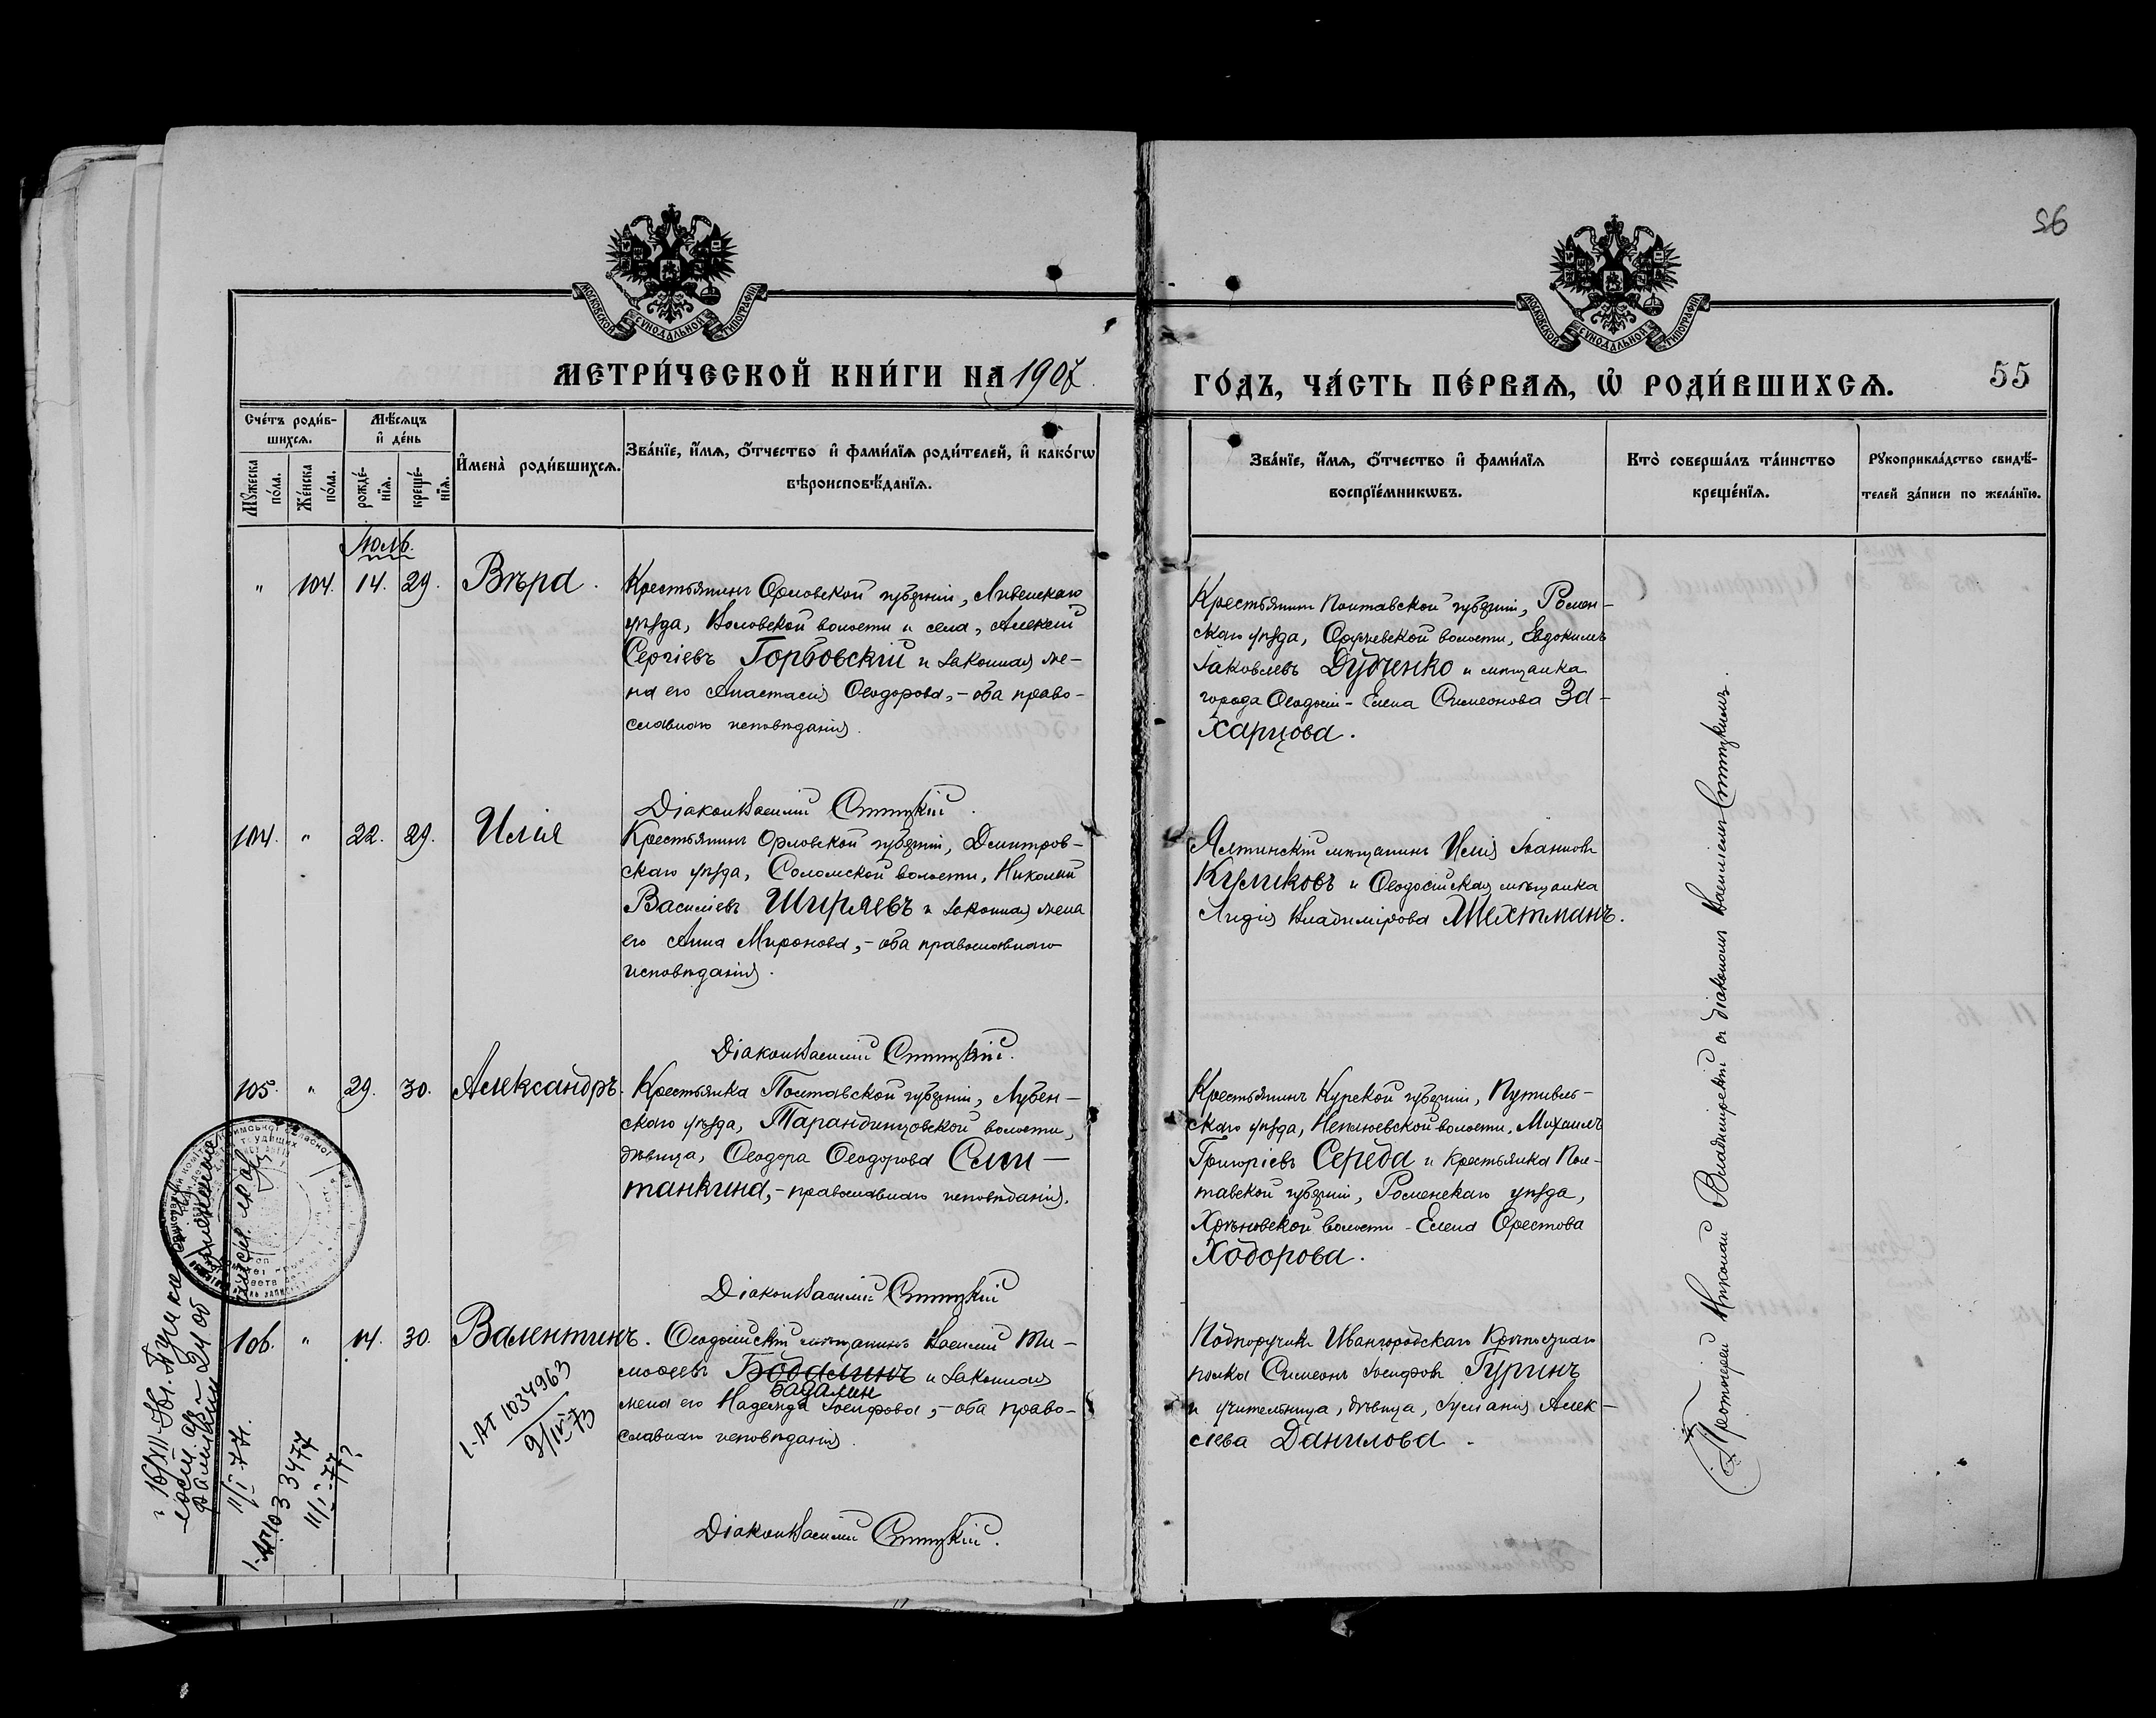 56
МОСКОВСКОЙ СУНОДАЛЬНОЙ ТИПОГРАФІИ
МОСКОВСКОЙ СУНОДАЛЬНОЙ ТИПОГРАФІИ
МЕТРИ́ЧЕСКОЙ КНИ́ГИ НА 1907
ГО́ДЪ, ЧА́СТЬ ПЕ́РВАѦ, Ѡ҆ РОДИ́ВШИХСѦ. 55
Сче́тъ роди́в-
шихсѧ.
Мꙋ́жеска по́ла.
Же́нска по́ла.
Мѣ́сѧцъ
и҆ де́нь
рожде́-
нїѧ.
креще́-
нїѧ.
И҆мена̀ роди́вшихсѧ.
Зва́нїе, и҆́мѧ, ѻ҆́тчество и҆ фами́лїѧ роди́телей, и҆ како́гѡ
вѣроисповѣ́данїѧ.
Зва́нїе, и҆́мѧ, ѻ҆́тчество и҆ фами́лїѧ
воспрїе́мникѡвъ.
Кто̀ соверша́лъ та́инство
креще́нїѧ.
Рꙋкоприкла́дство свидѣ́-
телей за́писи по жела́нїю.
Іюль.
" 104. 14. 29. Вѣра.
Крестьянинъ Орловской губерніи, Ливенскаго
уѣзда, Воловской волости и села, Алексій
Сергіевъ Горбовскій и законная же-
на его Анастасія Ѳеодорова,- оба право-
славнаго исповѣданія.
Діаконъ Василій
Крестьянинъ Полтавской губерніи, Ромен-
скаго уѣзда, волости, Евдокимъ
Іаковлевъ Дубченко и мѣщанка
города Ѳеодосіи - Елена Симеонова За-
харцова.
104. " 22. 29. Илія
Крестьянинъ Орловской губерніи, Дмитров-
скаго уѣзда, Соломской волости, Николай
Василіевъ Ширяевъ и законная жена
его Анна Миронова,- оба православнаго
исповѣданія.
Діаконъ Василій
Ялтинскій мѣщанинъ Илія Іоанновъ
Куликовъ и Ѳеодосійская мѣщанка
Лидія Владимірова Шехтманъ.
105. " 29. 30. Александръ.
Крестьянка Полтавской губерніи, Лубен-
скаго уѣзда, Тарандинцовской волости,
дѣвица, Ѳеодора Ѳеодорова
танкина,- православнаго исповѣданія.
Діаконъ Василій
Крестьянинъ Курской губерніи, Путивль-
скаго уѣзда, Неплюевской волости, Михаилъ
Григоріевъ Середа и крестьянка Пол-
тавской губерніи, Роменскаго уѣзда,
Хрѣновской волости - Елена Орестова
Ходорова.
106. " 14. 30. Валентинъ.
Ѳеодосійскій мѣщанинъ Василій Ти-
моѳеевъ Бодалинъ и законная
Бадалин
жена его Надежда Іосифова,- оба право-
славнаго исповѣданія.
Діаконъ Василій
Подпоручикъ Ивангородскаго Крѣпостнаго
полка Симеонъ Іосифовъ Гуринъ
и учительница, дѣвица, Іуліанія Алек-
сіева Данилова.
Протоіерей Николай Владимірскій съ діакономъ Василіемъ
I-АП 1034963
9/IV-73
11/I-77г.
11/I-77